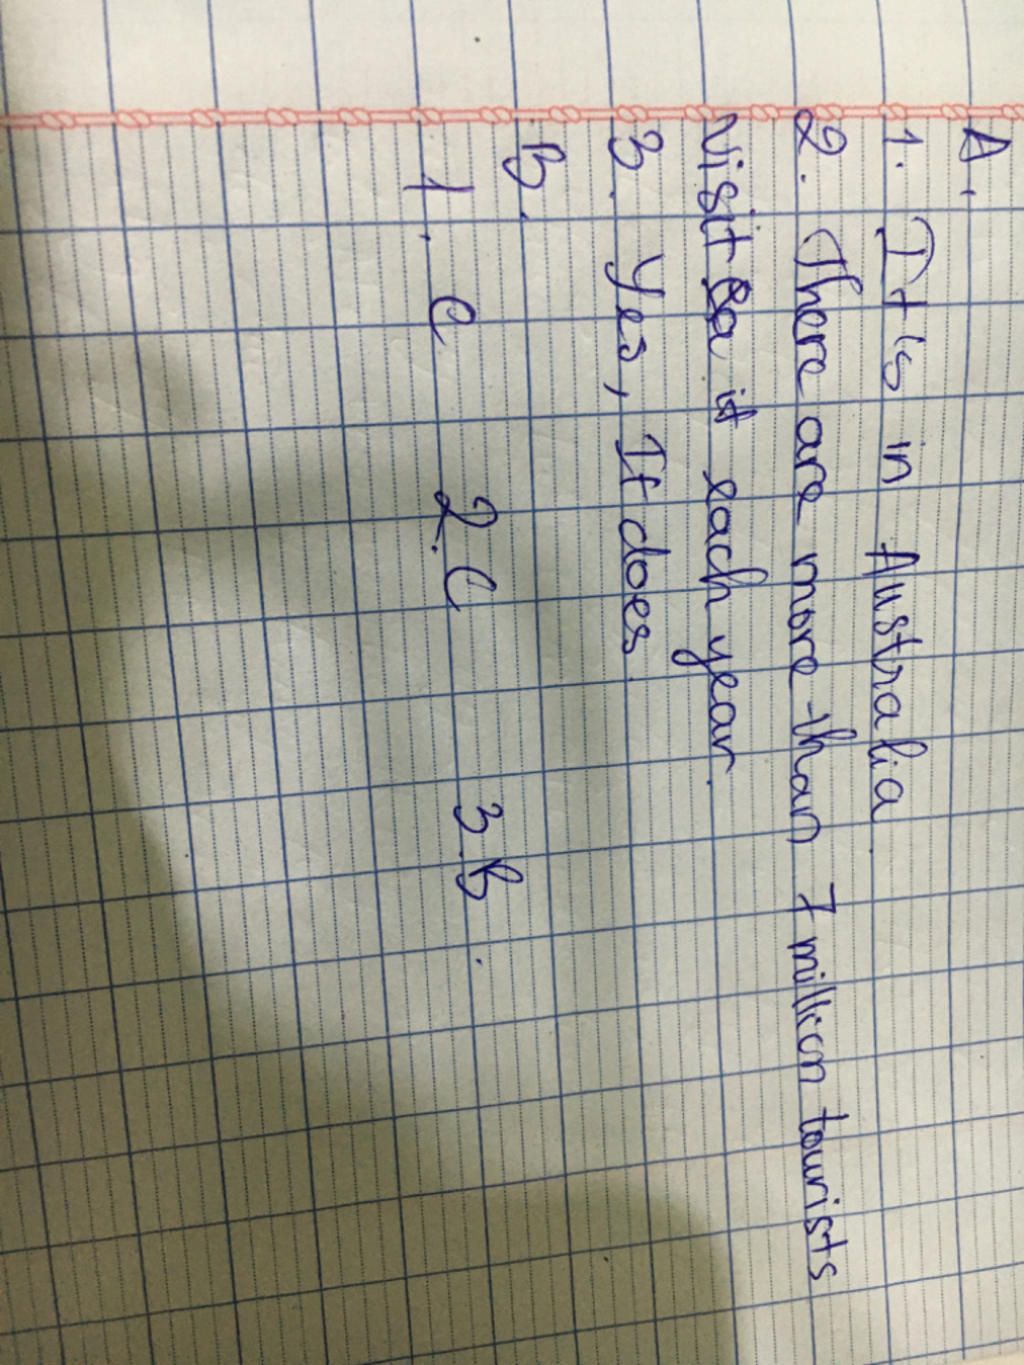 A.
1. It is in Australia.
2. There are more than 7 million tourists
visit it each year.
3. Yes, It does.
B.
1. C 2. C 3. B.